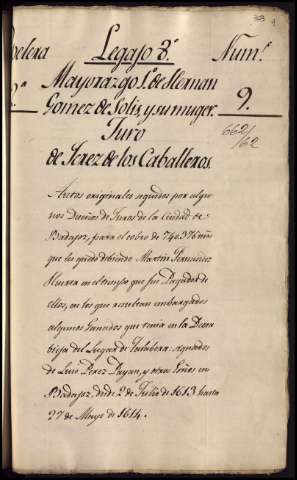 Legajo 8.º Num.º
Mayorazgo 1.º de Hernan
Gomez de Solis, y su muger
9.
Juro
662/
62
de Jerez de los Caballeros
Autos originales seguidos por algu-
nos Dueños de Juros de la Ciudad de
Badajoz, para el cobro de 740.376 mrs
que les quedó debiendo Martin
en el tiempo que fue Pagador de
ellos, en los que resultan embargados
algunos Ganados que tenia en la
del Lugar de Talabera. signados
de Luis Perez Payan, y otros Esnos en
Badajoz, desde 2 de Julio de 1613 hasta
27 de Mayo de 1614.